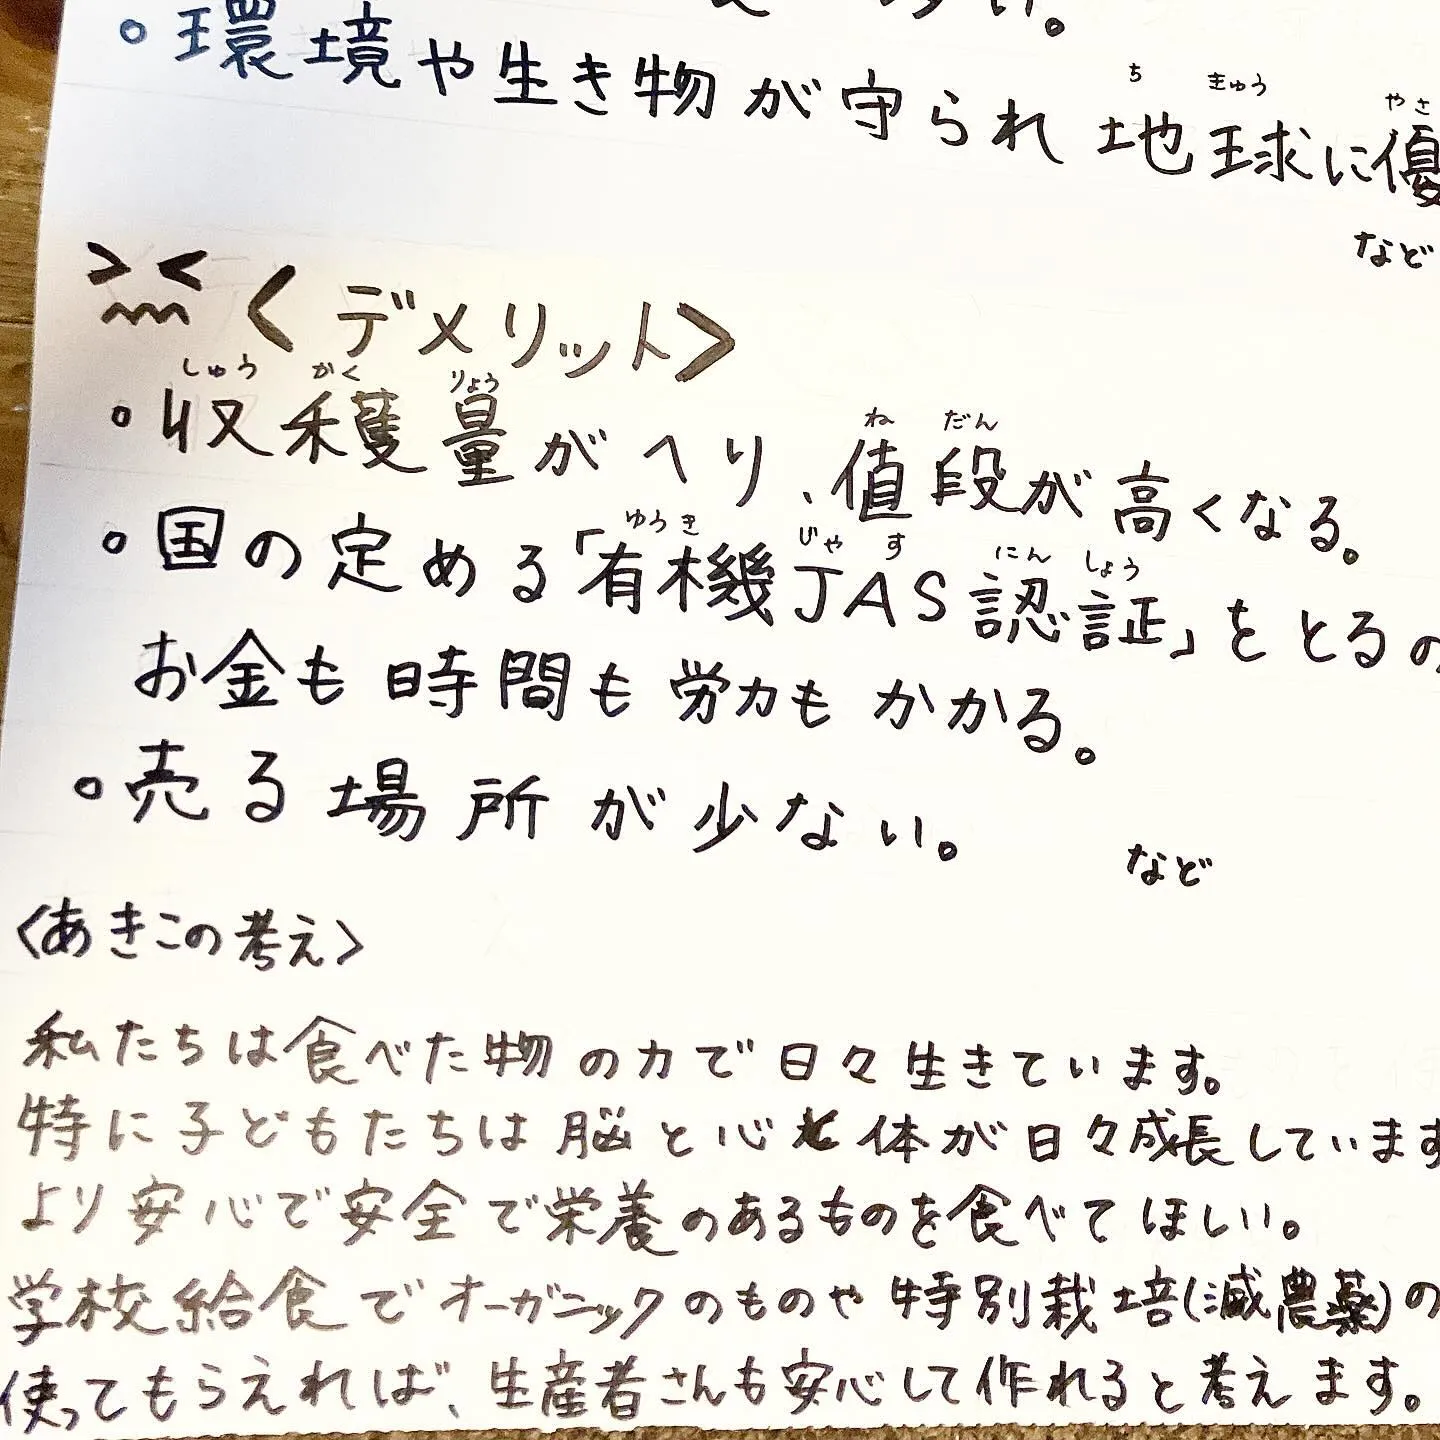 い。
・環境や生き物が守られ地球に優
ち きゅう やさ
など
<デメリット>
しゅう かく りょう ね だん
・収穫量がへり、値段が高くなる。
ゆうき じゃす にんしょう
・国の定める「有機JAS認証」をとるの
お金も時間も労力もかかる。
・売る場所が少ない。
など
<あきこの考え>
私たちは食べた物の力で日々生きています。
特に子どもたちは脳と心と体が日々成長しています
より安心で安全で栄養のあるものを食べてほしい。
学校給食でオーガニックのものや特別栽培(減農薬)の
使ってもらえれば、生産者さんも安心して作れると考えます。